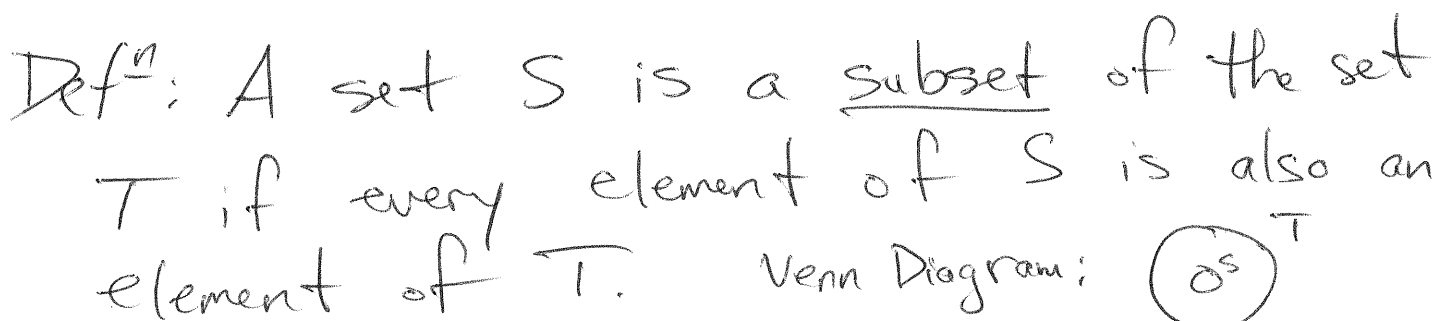 Defⁿ: A set S is a subset of the set
T if every element of S is also an
element of T. Venn Diagram: S T